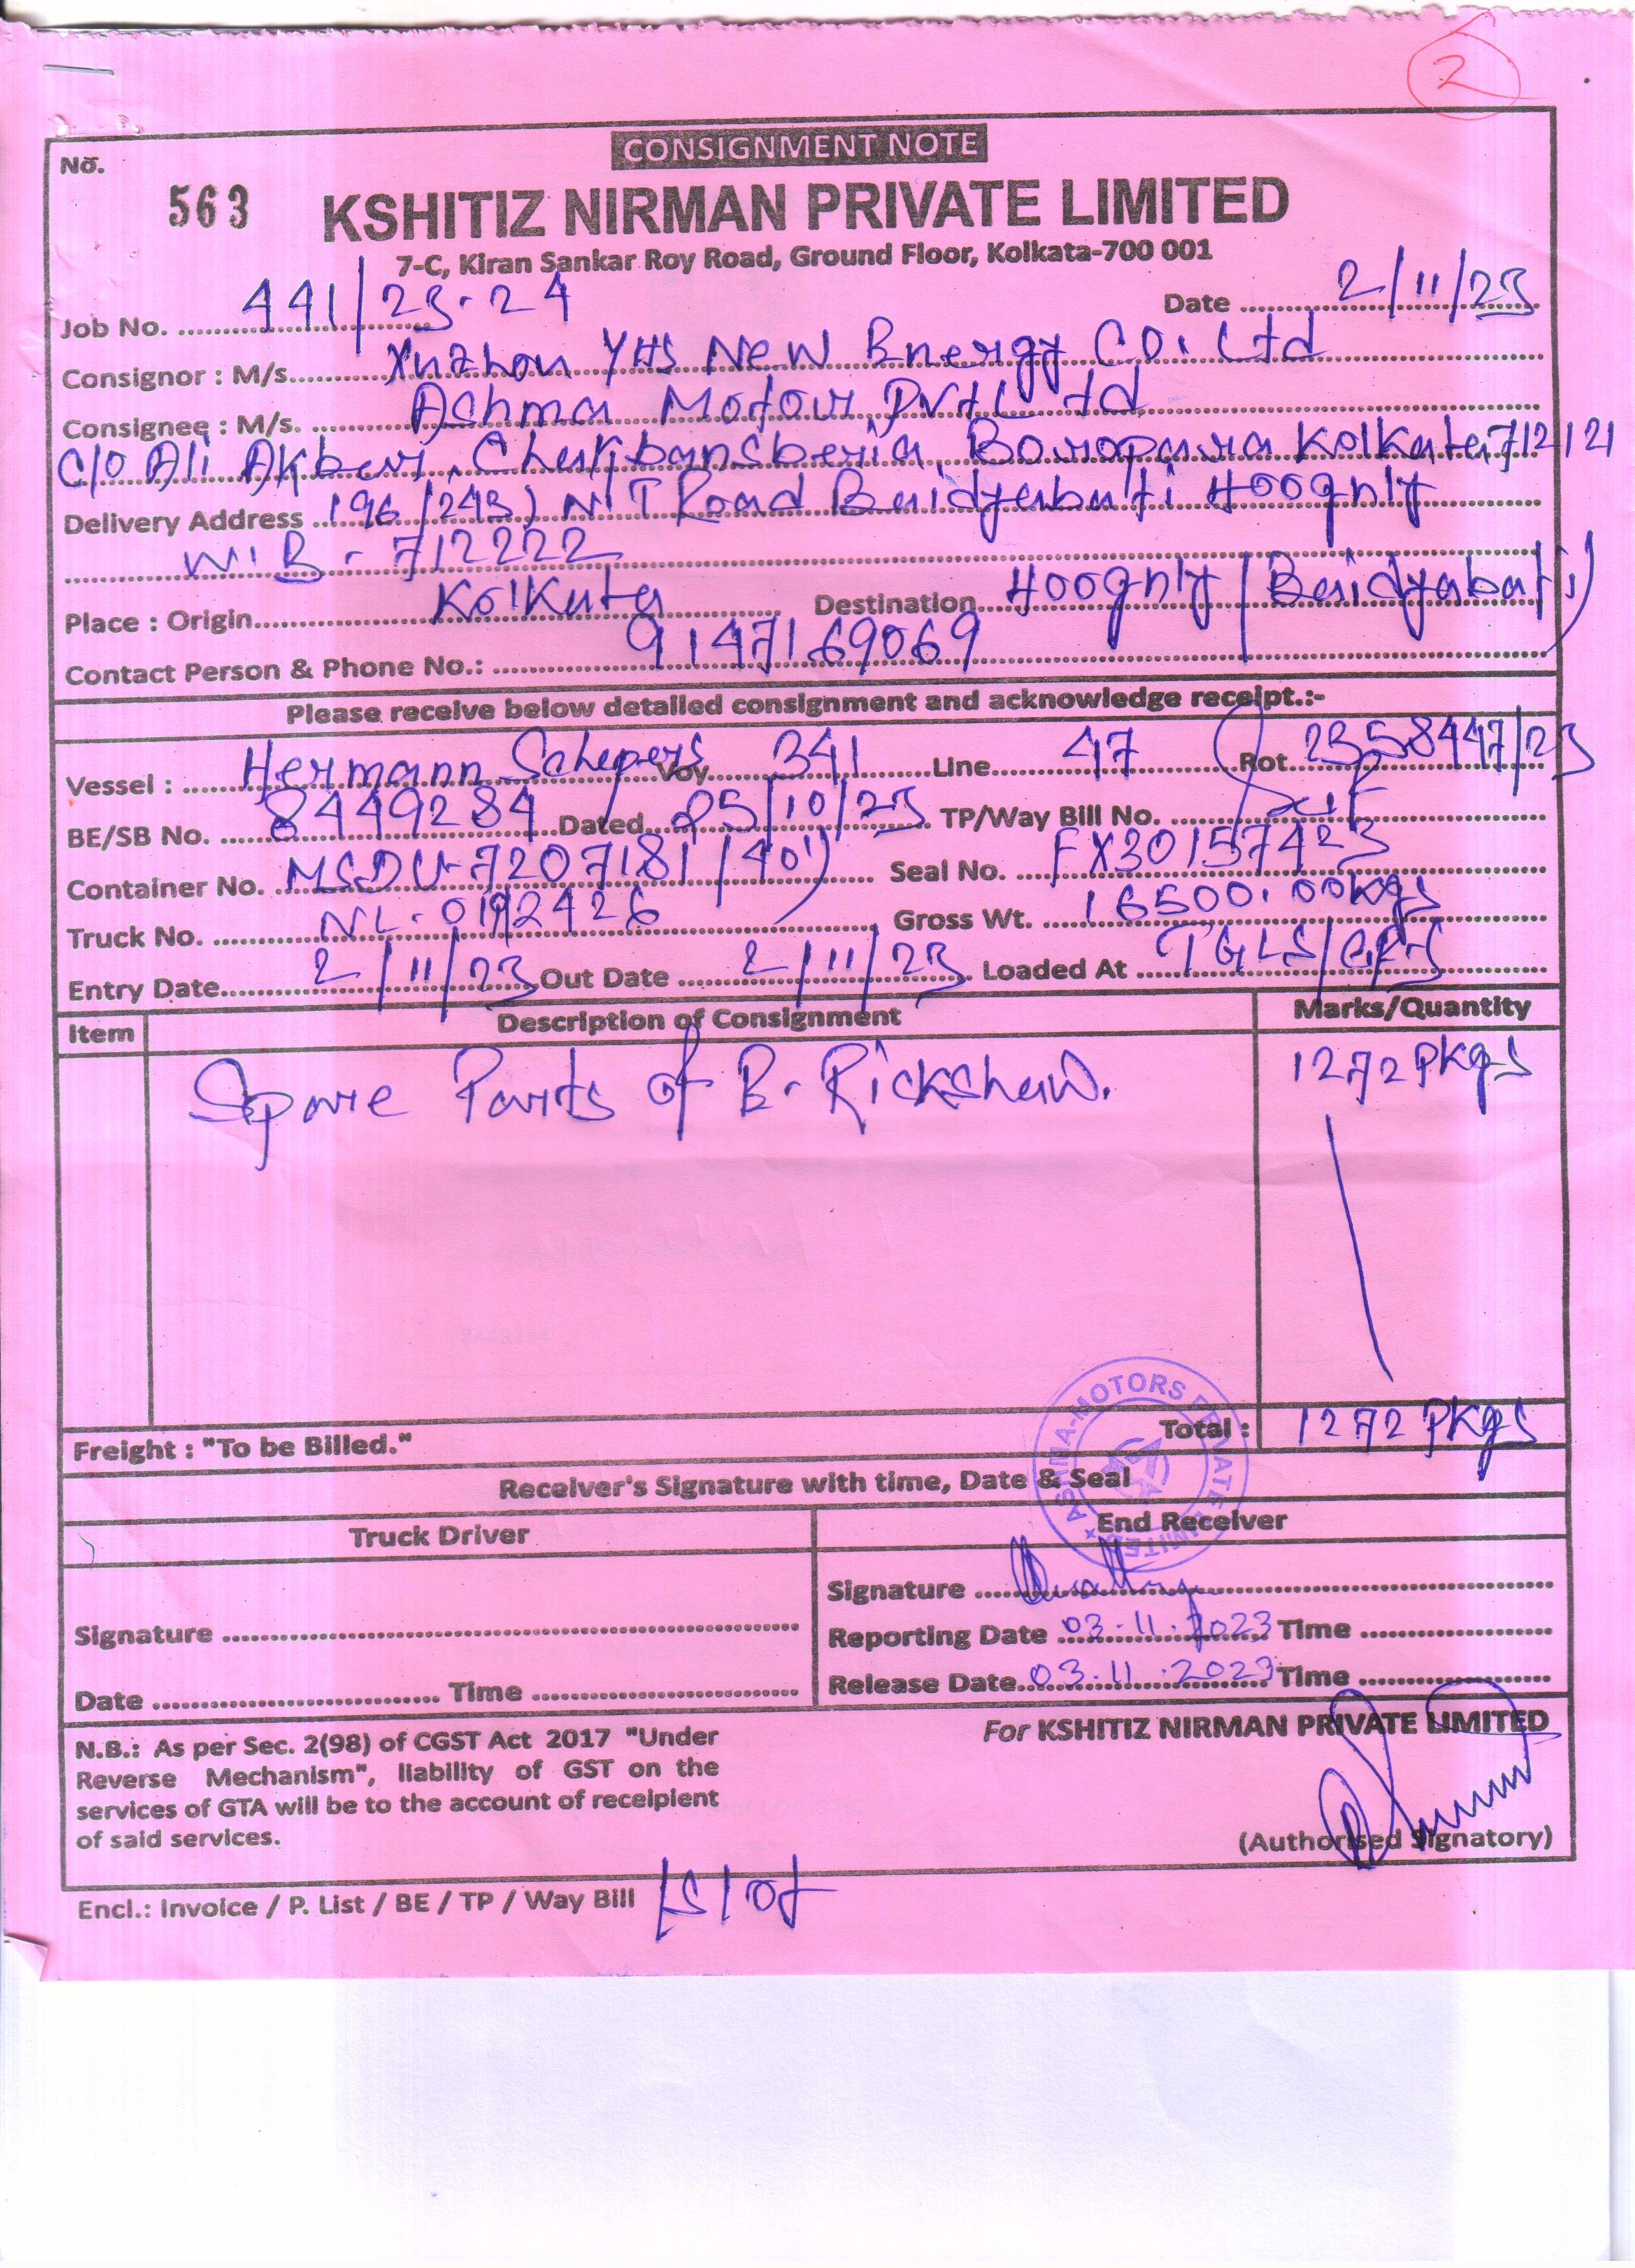 2
CONSIGNMENT NOTE
No.
563
KSHITIZ NIRMAN PRIVATE LIMITED
7-C, Kiran Sankar Roy Road, Ground Floor, Kolkata-700 001
Job No. 441/23-24 Date 2/11/23
Consignor : M/s. Xuzhou YHS New Energy CO. Ltd
Consignee : M/s. Ashma Motour Pvt Ltd
C/O Ali Akbar, Chakbansberia, Boropara Kolkata 712121
Delivery Address 196/243) N T Road Baidyabati Hooghly
W.B - 712222
Place : Origin Kolkata Destination Hooghly (Baidyabati)
Contact Person & Phone No.: 9147169069
Please receive below detailed consignment and acknowledge receipt.:-
Vessel : Hermann Schepers Voy 341 Line 47 Rot 2358447/23
BE/SB No. 8449284 Dated 25/10/23 TP/Way Bill No.
Container No. MSDU-7207181 (40') Seal No. FX30157423
Truck No. NL-01 2426 Gross Wt. 16500.00kgs
Entry Date 2/11/23 Out Date 2/11/23 Loaded At TGLS/
Item Description of Consignment Marks/Quantity
Spare Parts of E-Rickshaw. 1272 Pkgs
Freight : "To be Billed." Total : 1272 Pkgs
ASHMA-MOTORS PRIVATE LIMITED
Receiver's Signature with time, Date & Seal
Truck Driver End Receiver
Signature
Signature Reporting Date 03.11.2023 Time
Date Time Release Date 03.11.2023 Time
For KSHITIZ NIRMAN PRIVATE LIMITED
N.B.: As per Sec. 2(98) of CGST Act 2017 "Under
Reverse Mechanism", liability of GST on the
services of GTA will be to the account of receipient
of said services.
(Authorised Signatory)
Encl.: Invoice / P. List / BE / TP / Way Bill